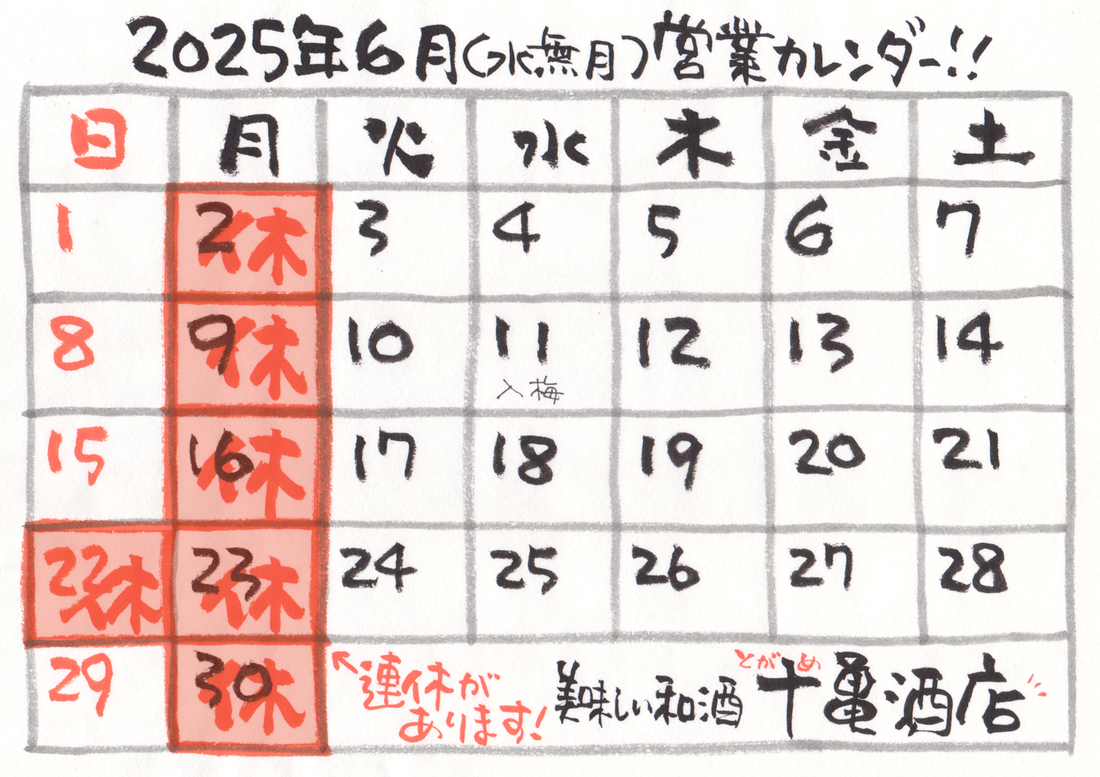 2025年6月(水無月)営業カレンダー!!
日 月 火 水 木 金 土
1 2休 3 4 5 6 7
8 9休 10 11 12 13 14
入梅
15 16休 17 18 19 20 21
22休 23休 24 25 26 27 28
29 30休
←連休が
あります!
美味しい和酒
とがめ
十亀酒店